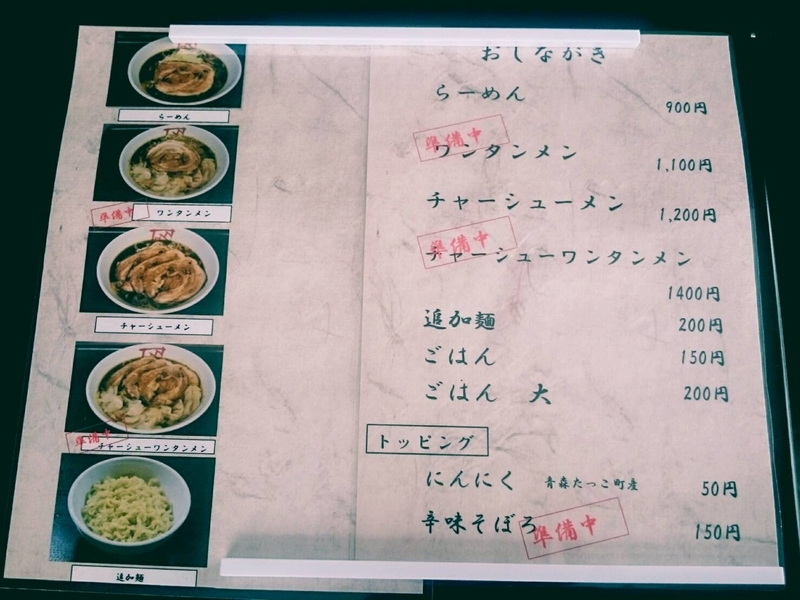 らーめん
ワンタンメン
準備中
チャーシューメン
チャーシューワンタンメン
準備中
追加麺
おしながき
らーめん 900円
準備中
ワンタンメン 1,100円
チャーシューメン 1,200円
準備中
チャーシューワンタンメン
1400円
追加麺 200円
ごはん 150円
ごはん 大 200円
トッピング
にんにく 青森たっこ町産 50円
辛味そぼろ 準備中 150円